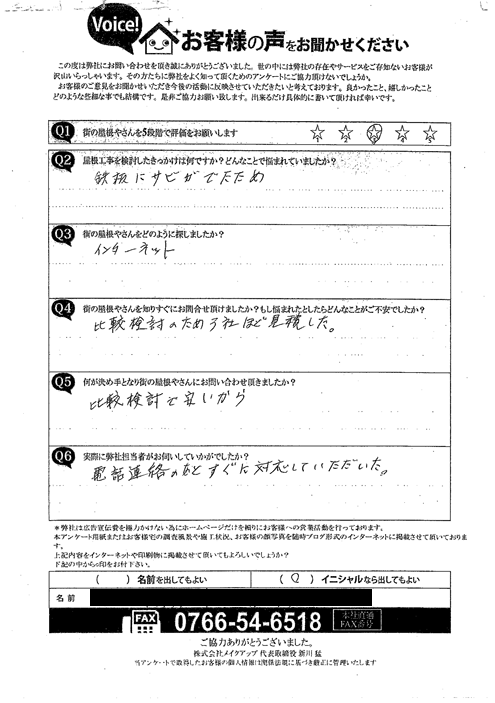 Voice!
お客様の声をお聞かせください
この度は弊社にお問い合わせを頂き誠にありがとうございました。世の中には弊社の存在やサービスをご存知ないお客様が
沢山いらっしゃいます。その方たちに弊社をよく知って頂くためのアンケートにご協力頂けないでしょうか。
お客様のご意見をお聞かせいただき今後の活動に反映させていただきたいと考えております。良かったこと、嬉しかったこと
どのような些細な事でも結構です。是非ご協力お願い致します。出来るだけ具体的に書いて頂ければ幸いです。
Q1 街の屋根やさんを5段階で評価をお願いします
1 2 3 4 5
Q2 屋根工事を検討したきっかけは何ですか？どんなことで悩まれていましたか？
鉄板にサビがでたため
Q3 街の屋根やさんをどのように探しましたか？
インターネット
Q4 街の屋根やさんを知りすぐにお問合せ頂けましたか？もし悩まれたとしたらどんなことがご不安でしたか？
比較検討のため3社ほど見積した。
Q5 何が決め手となり街の屋根やさんにお問い合わせ頂きましたか？
比較検討で安いから
Q6 実際に弊社担当者がお伺いしていかがでしたか？
電話連絡のあとすぐに対応していただいた。
＊弊社は広告宣伝費を極力かけない為にホームページだけを頼りにお客様への営業活動を行っております。
本アンケート用紙またはお客様宅の調査風景や施工状況、お客様の顔写真を随時ブログ形式のインターネットに掲載させて頂いておりま
す。
上記内容をインターネットや印刷物に掲載させて頂いてもよろしいでしょうか？
下記の中から○印をお付け下さい。
（ ）名前を出してもよい （○）イニシャルなら出してもよい
名前
FAX 0766-54-6518 本社直通 FAX番号
ご協力ありがとうございました。
株式会社メイクアップ 代表取締役 新川 猛
当アンケートで取得したお客様の個人情報は関係法規に基づき厳正に管理いたします